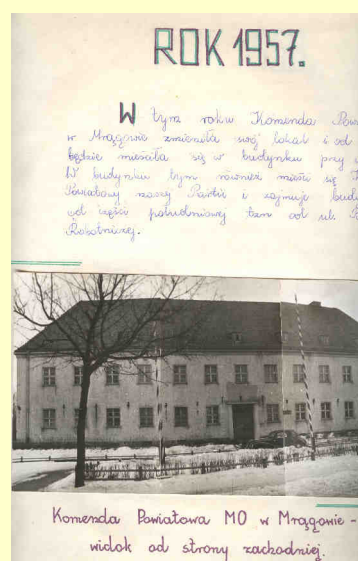 ROK 1957.
W tym roku Komenda Pow
w Mrągowie zmieniła swój lokal i od
będzie mieściła się w budynku przy
W budynku tym również mieści się
Powiatowy naszej Partii i zajmuje bud
od części południowej tzn od ul.
Robotniczej.
Komenda Powiatowa MO w Mrągowie -
widok od strony zachodniej.